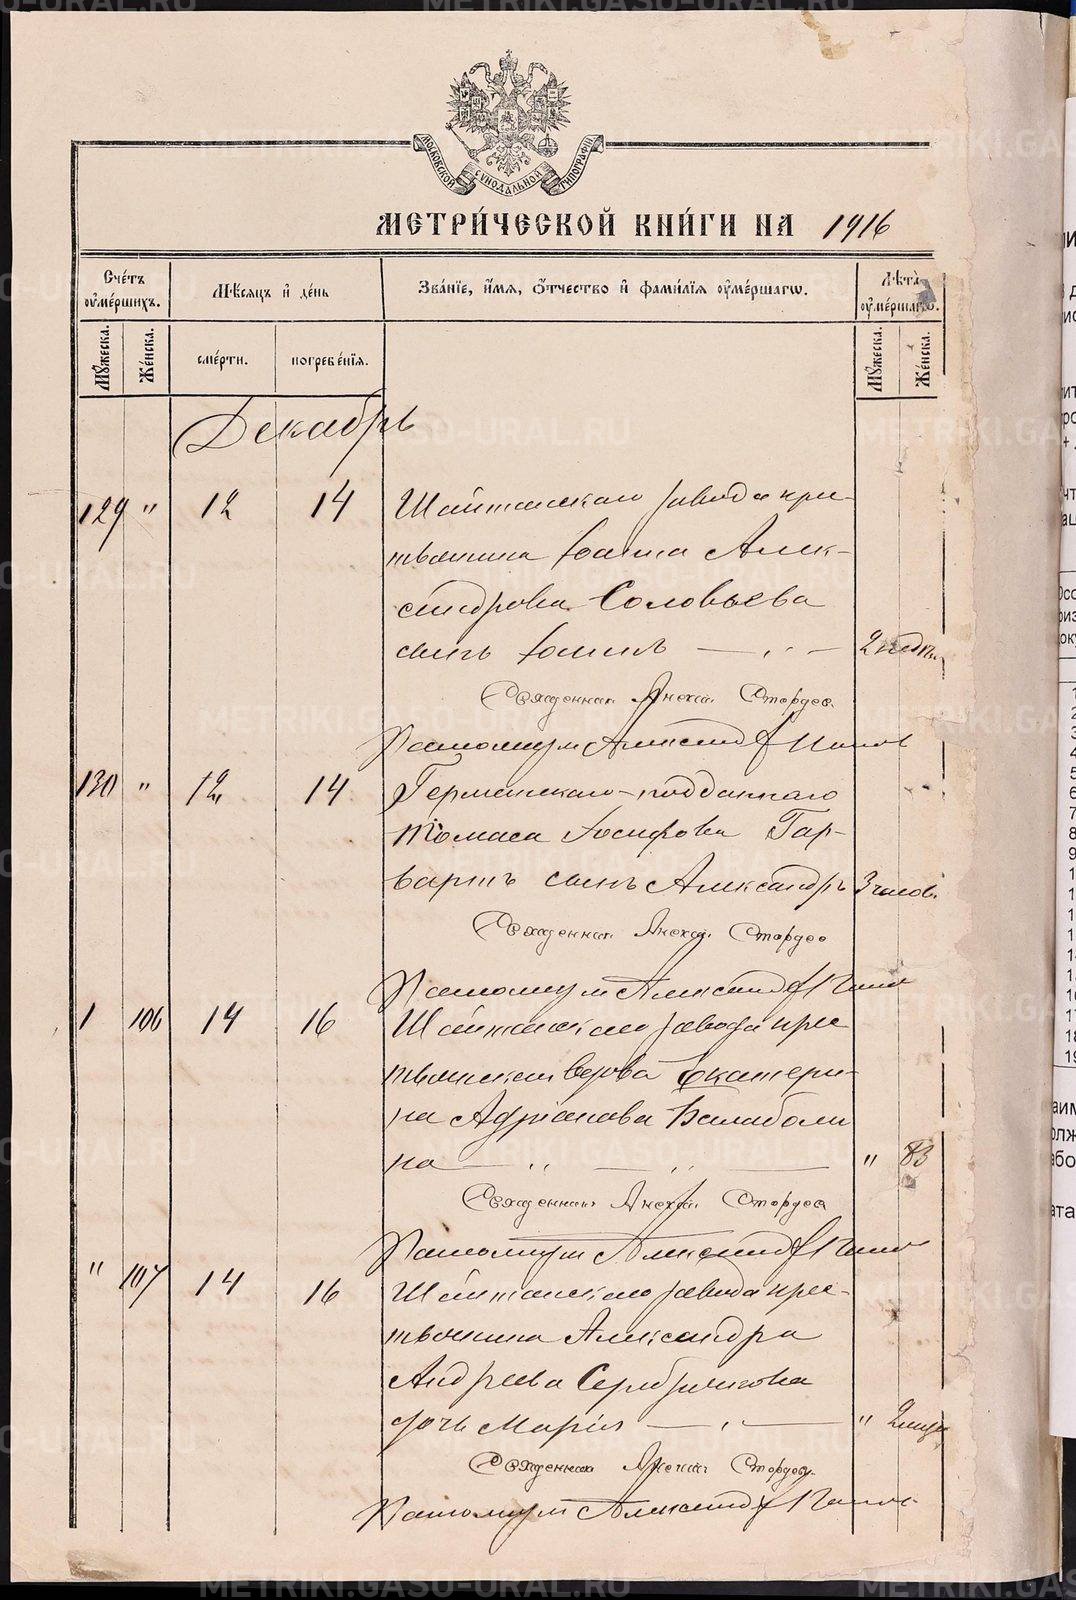 МОСКОВСКОЙ СѴНОДАЛЬНОЙ ТИПОГРАФІИ
МЕТРИ́ЧЕСКОЙ КНИ́ГИ НА 1916
Счéтъ ᲂу҆мéршихъ.
Мѣ́сяцъ и҆ дéнь
Звáнїе, и҆́мя, ѻ҆́тчество и҆ фами́лїя ᲂу҆мéршагѡ.
Лѣ́та ᲂу҆мéршагѡ.
Мꙋ́жеска.
Жéнска.
смéрти.
погребéнїя.
Мꙋ́жеска.
Жéнска.
Декабрь
129 " 12 14 Шайтанскаго завода кре-
стьянина Іоанна Алек-
сандрова Соловьева
сынъ Іоаннъ 2 недѣли
Священникъ Алексій
Псаломщикъ Александръ
130 " 12 14 Германскаго-подданнаго
Томаса Іосифова Гар-
вартъ сынъ Александръ 3 часов.
Священникъ Алексій
Псаломщикъ Александръ
1 106 14 16 Шайтанскаго завода кре
стьянская вдова Екатери-
на Адріанова Балаболи
на " 83
Священникъ Алексій
Псаломщикъ Александръ
" 107 14 16 Шайтанскаго завода кре-
стьянина Александра
Андреева Серебрякова
дочь Марія " 2 мѣся
Священникъ Алексій
Псаломщикъ Александръ
METRIKI.GASO-URAL.RU